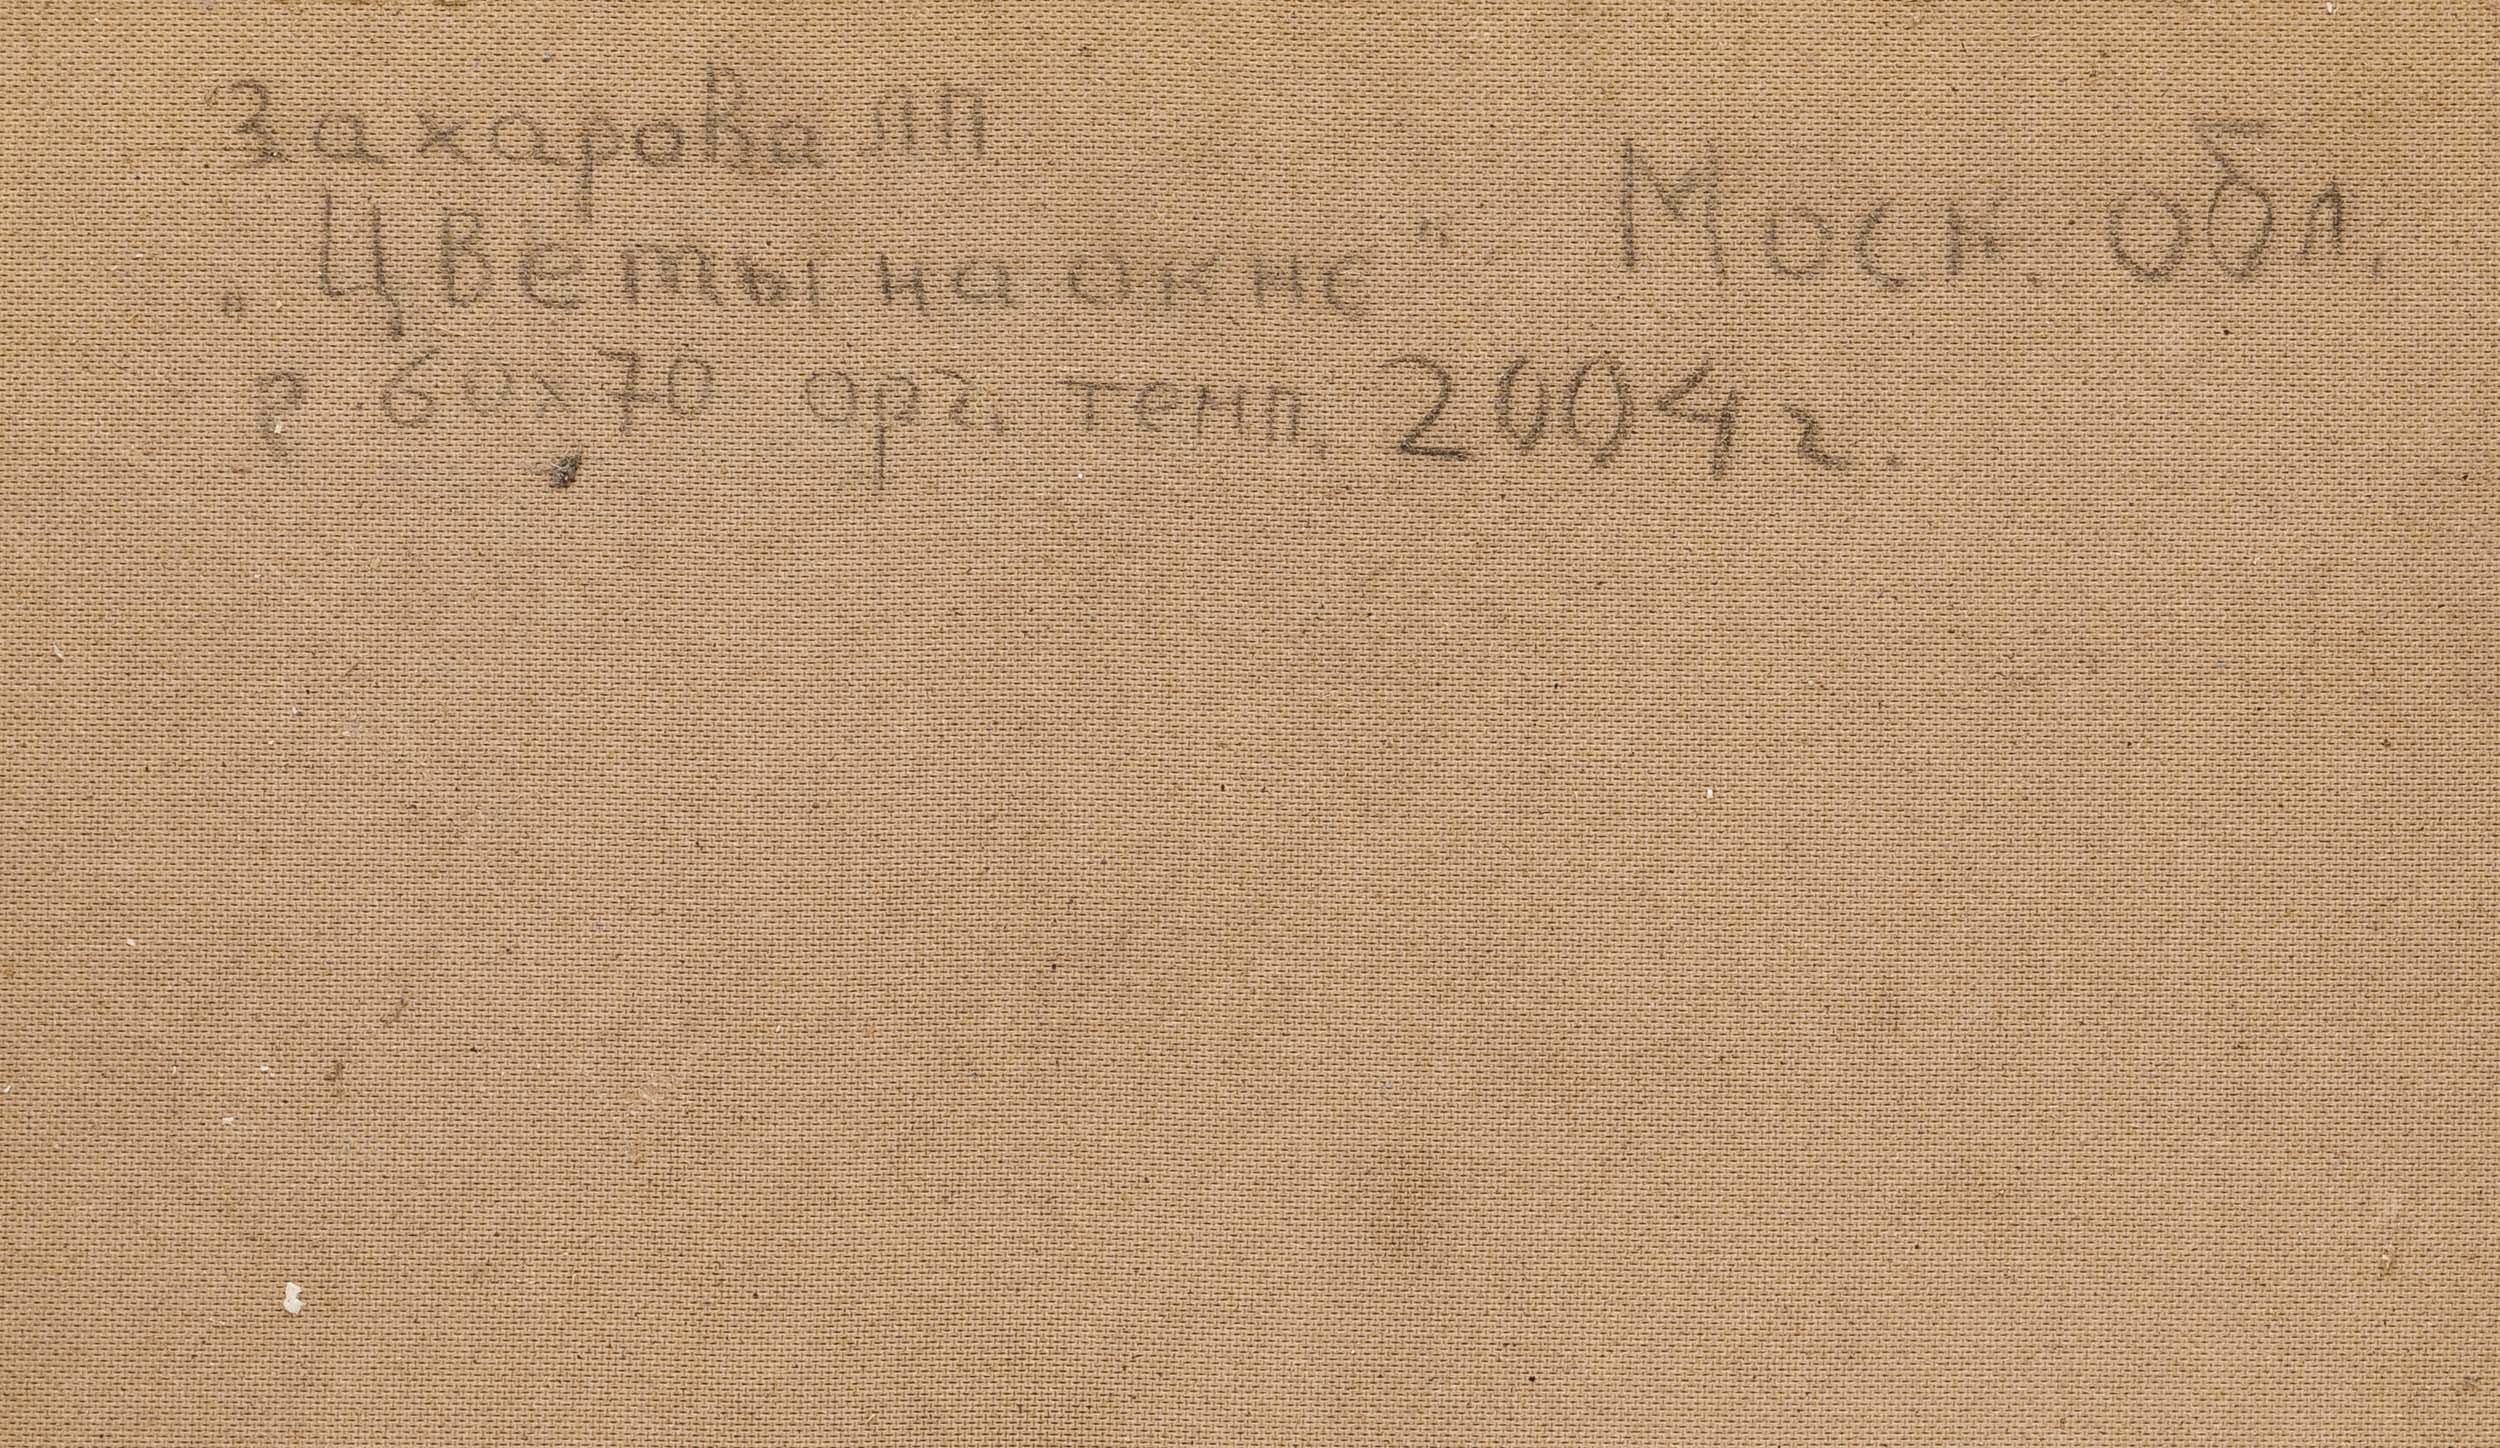 Захарова ЛП
„Цветы на окне" Моск. обл.
г 60х70 орг темп. 2004 г.